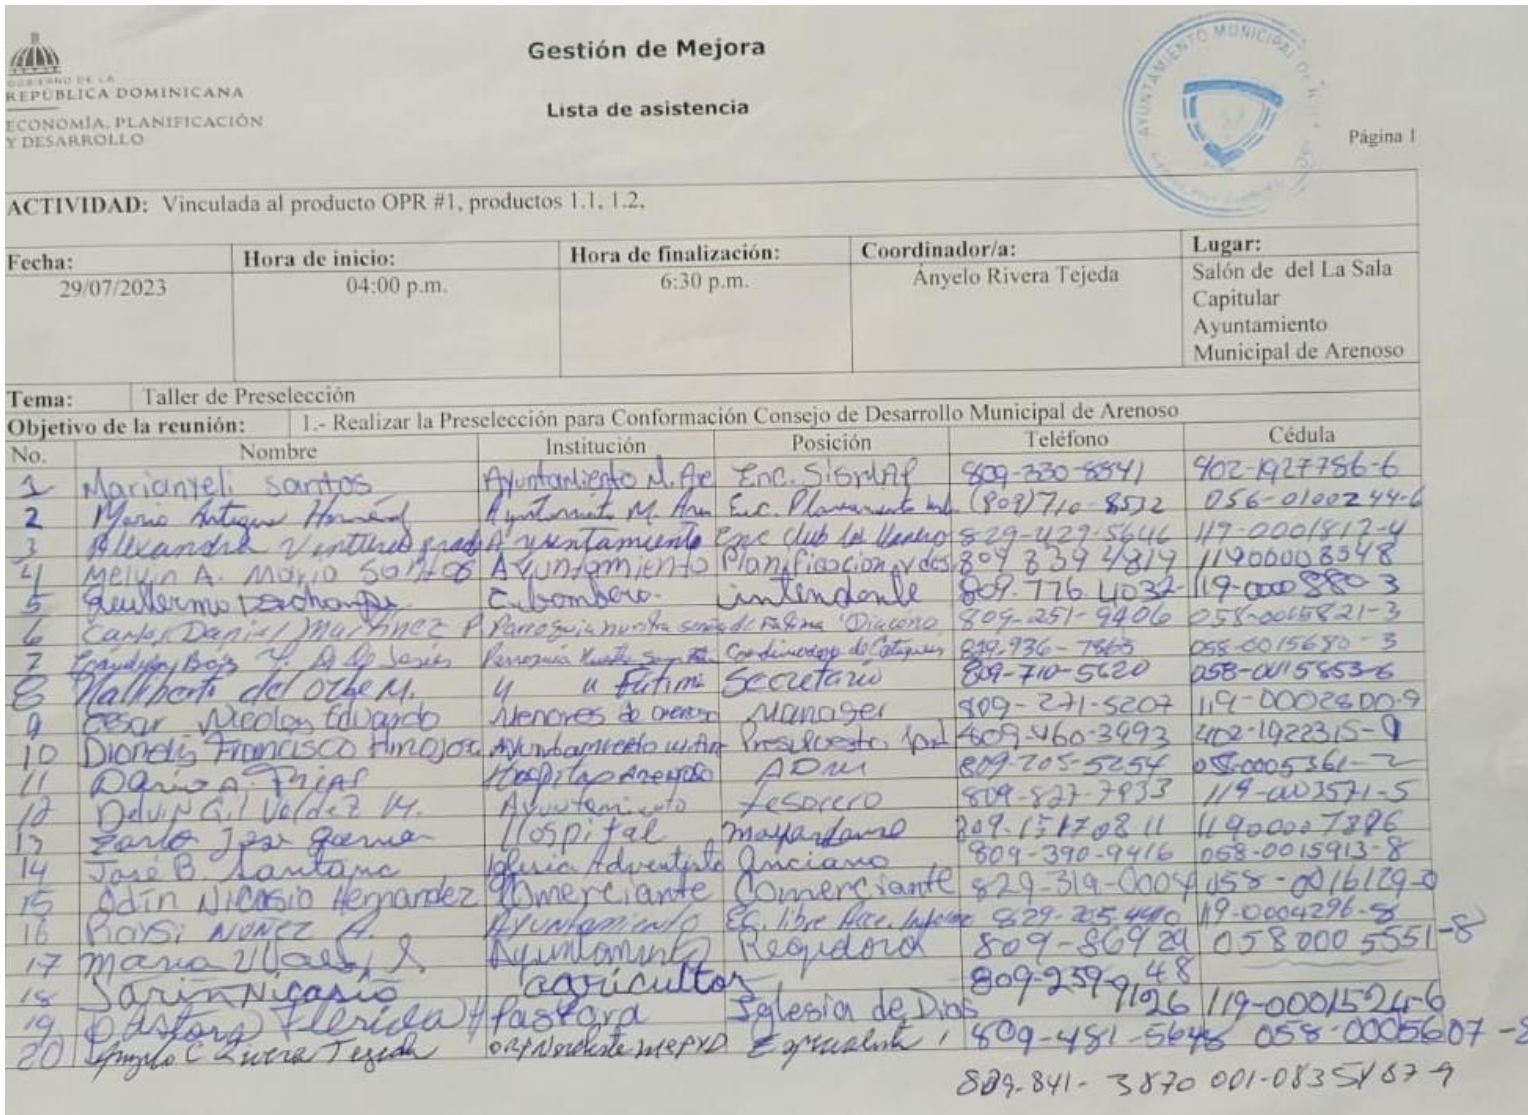 Gestión de Mejora
Lista de asistencia
GOBIERNO DE LA
REPÚBLICA DOMINICANA
ECONOMÍA, PLANIFICACIÓN
Y DESARROLLO
AYUNTAMIENTO MUNICIPAL DE
Página 1
ACTIVIDAD: Vinculada al producto OPR #1, productos 1.1, 1.2.
Fecha: Hora de inicio: Hora de finalización: Coordinador/a: Lugar:
29/07/2023 04:00 p.m. 6:30 p.m. Ányelo Rivera Tejeda Salón de del La Sala
Capitular
Ayuntamiento
Municipal de Arenoso
Tema: Taller de Preselección
Objetivo de la reunión: 1.- Realizar la Preselección para Conformación Consejo de Desarrollo Municipal de Arenoso
No. Nombre Institución Posición Teléfono Cédula
1 Marianyeli Santos Ayuntamiento M. Are Enc. SISMAP 809-330-8541 402-1927786-6
2 Mario Antigua M. Aren Enc. (809) 710-8532 056-0100244-6
3 Alexandra Ventura Ayuntamiento Enc club 829-429-5646 119-0001817-4
4 Melvin A. Mario Santos Ayuntamiento Planificacion y des 809 839 4819 11900008548
5 Guillermo C. bombero intendente 809.776.4032 119-0008880 3
6 Carlos Daniel Martinez P. Parroquia nuestra señora de Fatima Diacono 809-251-9406 058-0015821-3
7 de Jesús Parroquia Coordinadora de 829-936-7863 058-0015680-3
8 del Orbe M. " " Fatima Secretario 809-710-5620 058-0015853-6
9 Cesar Nicolas Eduardo Menores de arenoso Manager 809-271-5207 119-0002800-9
10 Francisco Ayuntamiento 809-460-3993 402-1922315-9
11 Dario A. Frias Hospital Arenoso ADM 809-205-5254 058-0005361-2
12 Delvin Gil Valdez M. Ayuntamiento tesorero 809-827-7933 119-0003571-5
13 Jose Hospital mayordomo 11900007896
14 José B. Santana Iglesia Adventista Anciano 809-390-9416 058-0015913-8
15 Odín Nicasio Hernandez Comerciante Comerciante 829-319-0004 058-0016129-0
16 NUÑEZ A. Ayuntamiento libre Acc. 829-205.4410 119-0004296-8
17 Maria Ayuntamiento Regidora 809-86929 058 000 5551-8
48
18 Nicasio agricultor 809-259-9126 119-0001524-6
19 Pastora Flerida H pastora Iglesia de Dios 809-481-5648 058-0005607-8
20 C Rivera Tejeda Nordeste MEPYD Especialista 829-841-3870 001-0835487-9